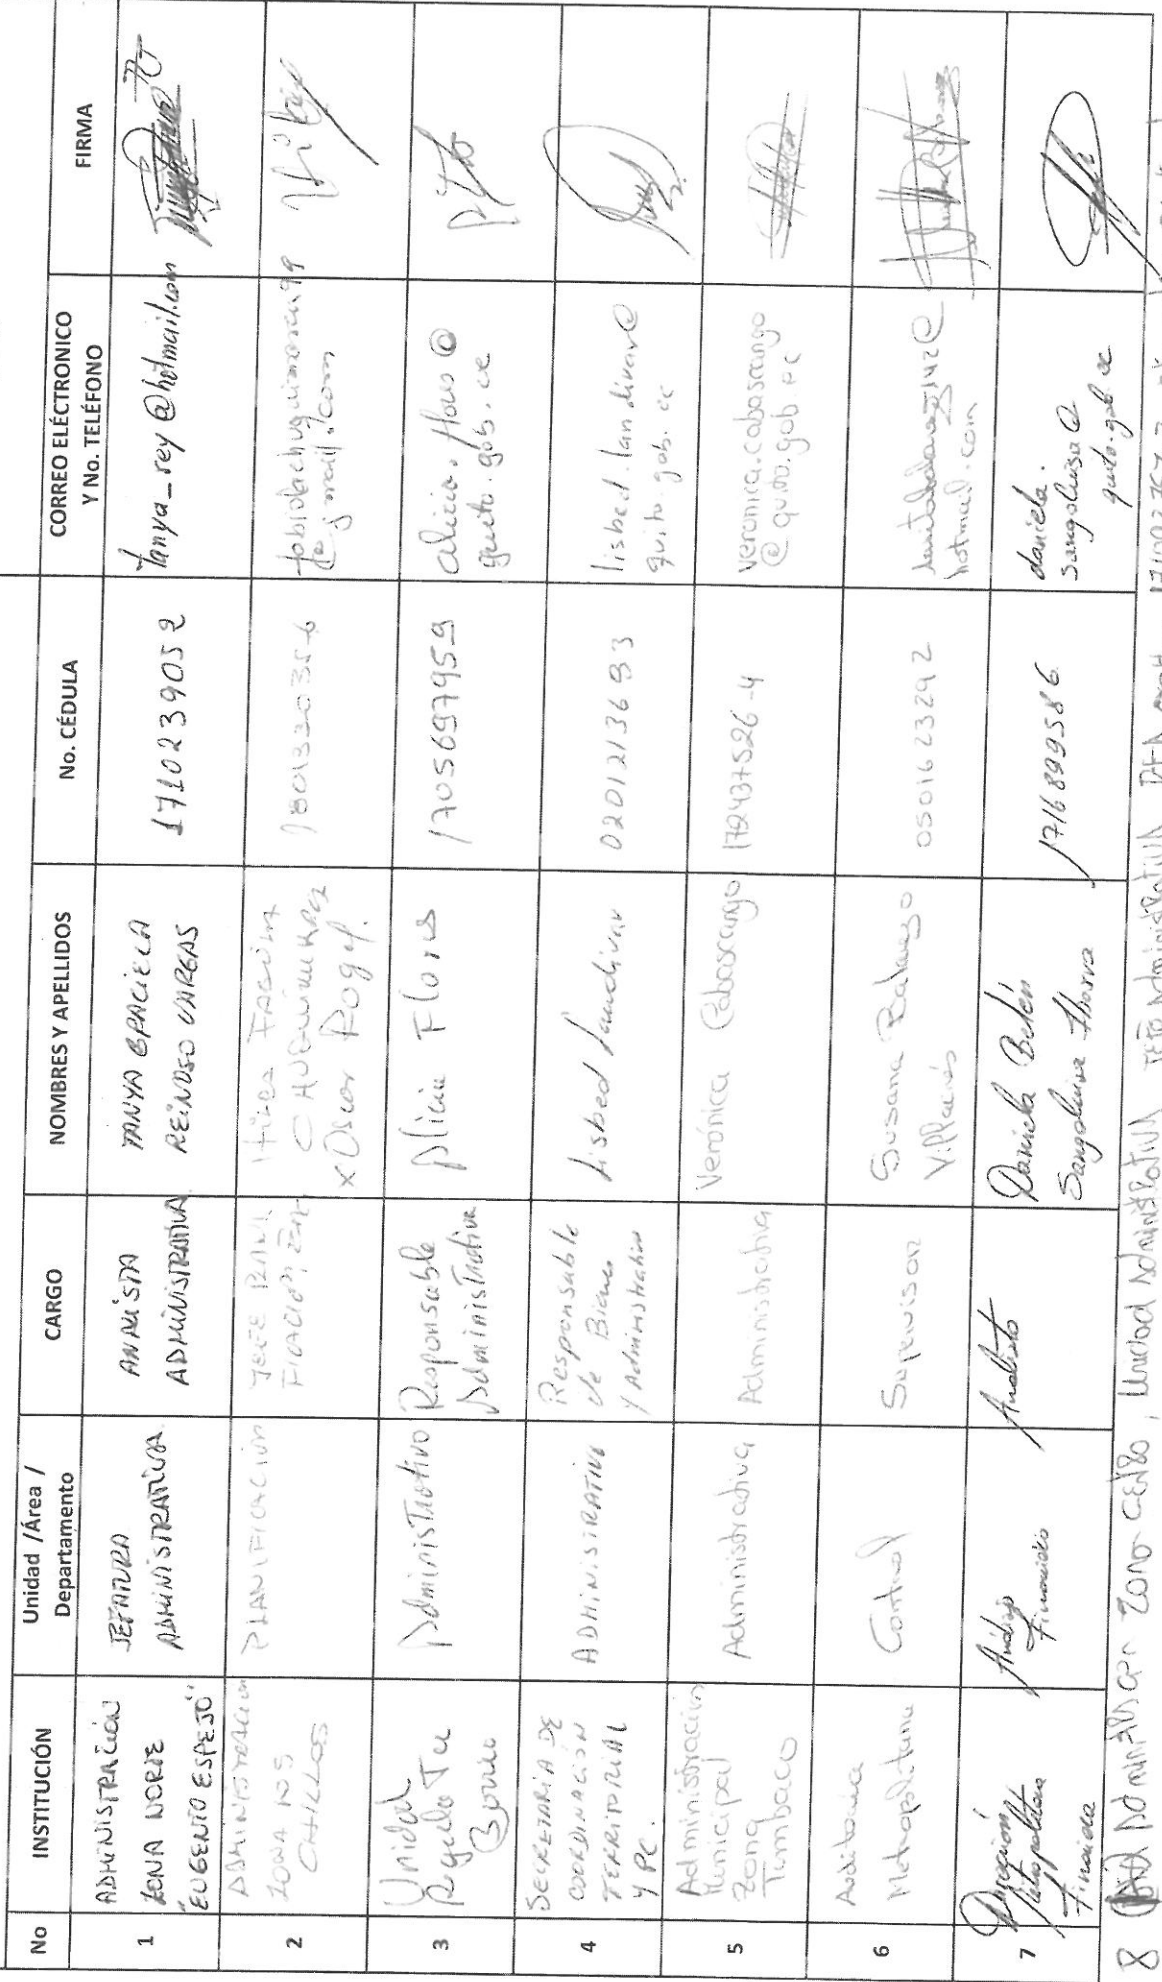 No
INSTITUCIÓN
Unidad /Área /
Departamento
CARGO
NOMBRES Y APELLIDOS
No. CÉDULA
CORREO ELÉCTRONICO
Y No. TELÉFONO
FIRMA
1
ADMINISTRACIÓN
ZONA NORTE
"EUGENIO ESPEJO"
JEFATURA
ADMINISTRATIVA
ANALISTA
ADMINISTRATIVA
TANYA GRACIELA
REINOSO VARGAS
1710239052
tanya_rey@hotmail.com
2
ADMINISTRACION
ZONA LOS
CHILLOS
PLANIFICACIÓN
JEFE
x Oscar Pogyl.
3
Unidad
Regula Tu
Barrio
Administrativo
Responsable
Administrativa
Alicia Flores
1705697959
alicia.flores@
quito.gob.ec
4
SECRETARÍA DE
COORDINACIÓN
TERRITORIAL
Y PC.
ADMINISTRATIVA
Responsable
de Bienes
y Administrativo
Lisbed Landivar
0201213693
lisbed.landivar@
quito.gob.ec
5
Administración
Municipal
Zona
Tumbaco
Administrativa
Administrativa
Verónica Cabascango
172437526-4
veronica.cabascango
@quito.gob.ec
6
Auditoria
Metropolitana
Control
Supervisor
Susana Balarezo
Villacís
0501623292
hotmail.com
7
Dirección
Metropolitana
Financiera
Financiero
Analista
Daniela Belén
Sangoluisa Ibarra
1716899586
daniela.
sangoluisa@
quito.gob.ec
8
Zona Centro, Unidad Administrativa